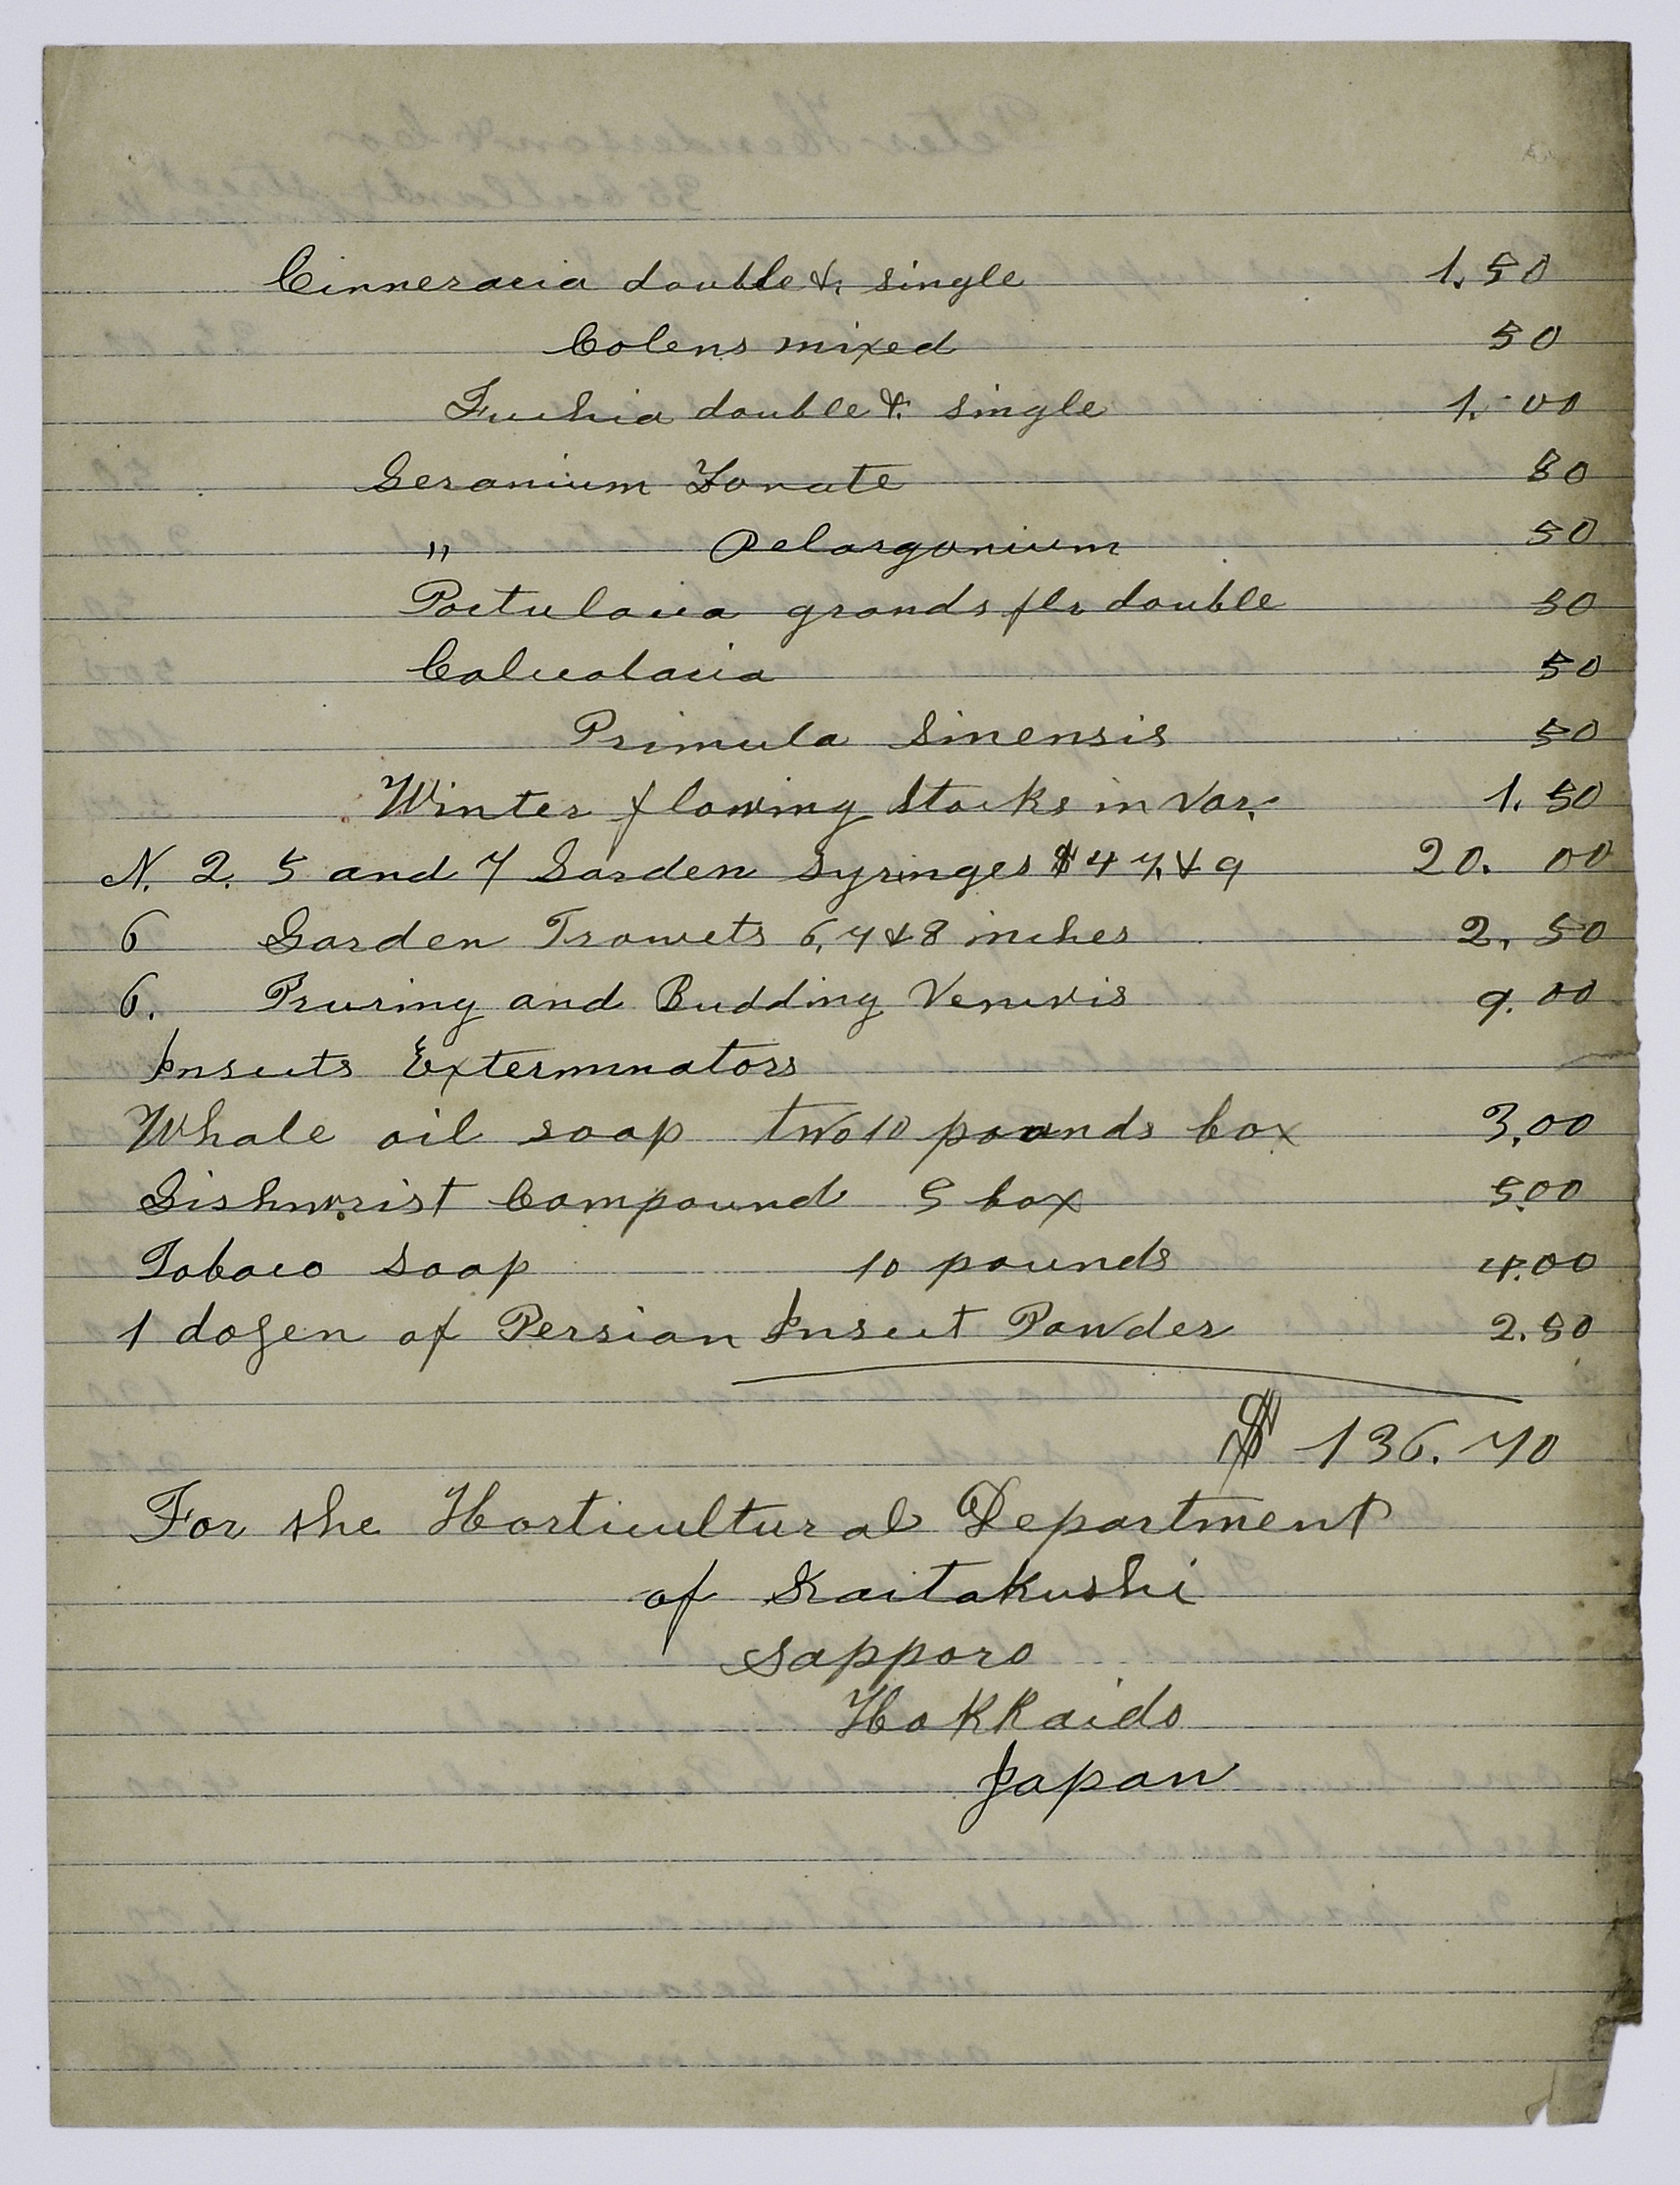 Cinneraria double & single 1.50
Coleus mixed 50
Fuchia double & single 1.00
Geranium Zonate 50
" Pelargonium 50
Portulaca grands flr double 50
Calceolaria 50
Primula Sinensis 50
Winter flowing Stocks in Var. 1.50
N. 2. 5 and 7 Garden Syringes $4 7, & 9 20.00
6 Garden Trowels 6, 7 & 8 inches 2.50
6. Pruning and Budding 9.00
Insects Exterminators
Whale oil soap two 10 pounds box 3.00
Gishurist Compound 5 box 5.00
Tobaco Soap 10 pounds 4.00
1 dozen of Persian Insect Powder 2.50
$ 136.70
For the Horticultural Department
of Kaitakushi
Sapporo
Hokkaido
Japan